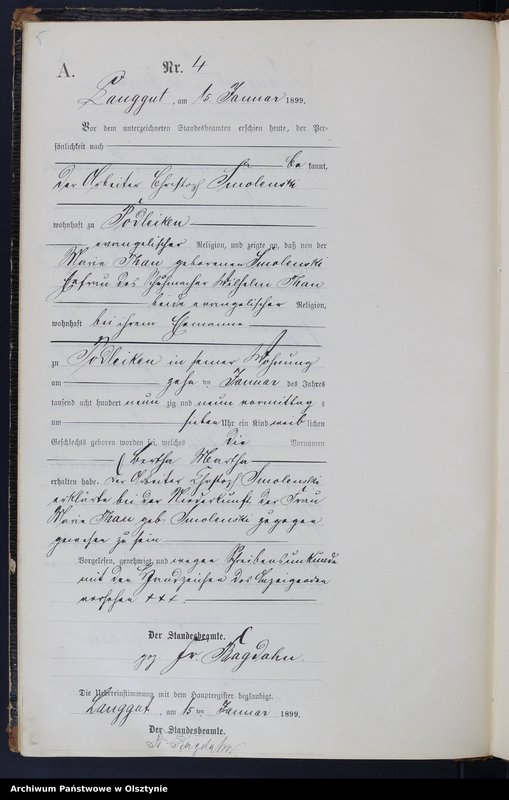 A. Nr. 4
Langgut, am 15. Januar 1899.
Vor dem unterzeichneten Standesbeamten erschien heute, der Per-
sönlichkeit nach
be kannt,
der Arbeiter Christoph Smolenski
wohnhaft zu Podleiken
evangelischer Religion, und zeigte an, daß von der
Marie Thau geborenen Smolenski
Ehefrau des Schuhmacher Wilhelm Thau
beide evangelischer Religion,
wohnhaft bei ihrem Ehemanne
zu Podleiken in seiner Wohnung
am zehn ten Januar des Jahres
tausend acht hundert neun zig und neun vormittag s
um sieben Uhr ein Kind weib lichen
Geschlechts geboren worden sei, welches die Vornamen
Bertha Martha
erhalten habe. Der Arbeiter Christoph Smolenski
erklärte bei der Niederkunft der Frau
Marie Thau geb. Smolenski zugegen
gewesen zu sein
Vorgelesen, genehmigt und wegen Schreibensunkunde
mit den Handzeichen des Anzeigenden
versehen +++.
Der Standesbeamte.
gez Fr. Kagdahn
Die Uebereinstimmung mit dem Hauptregister beglaubigt.
Langgut, am 15 ten Januar 1899.
Der Standesbeamte.
Fr. Kagdahn
Archiwum Państwowe w Olsztynie